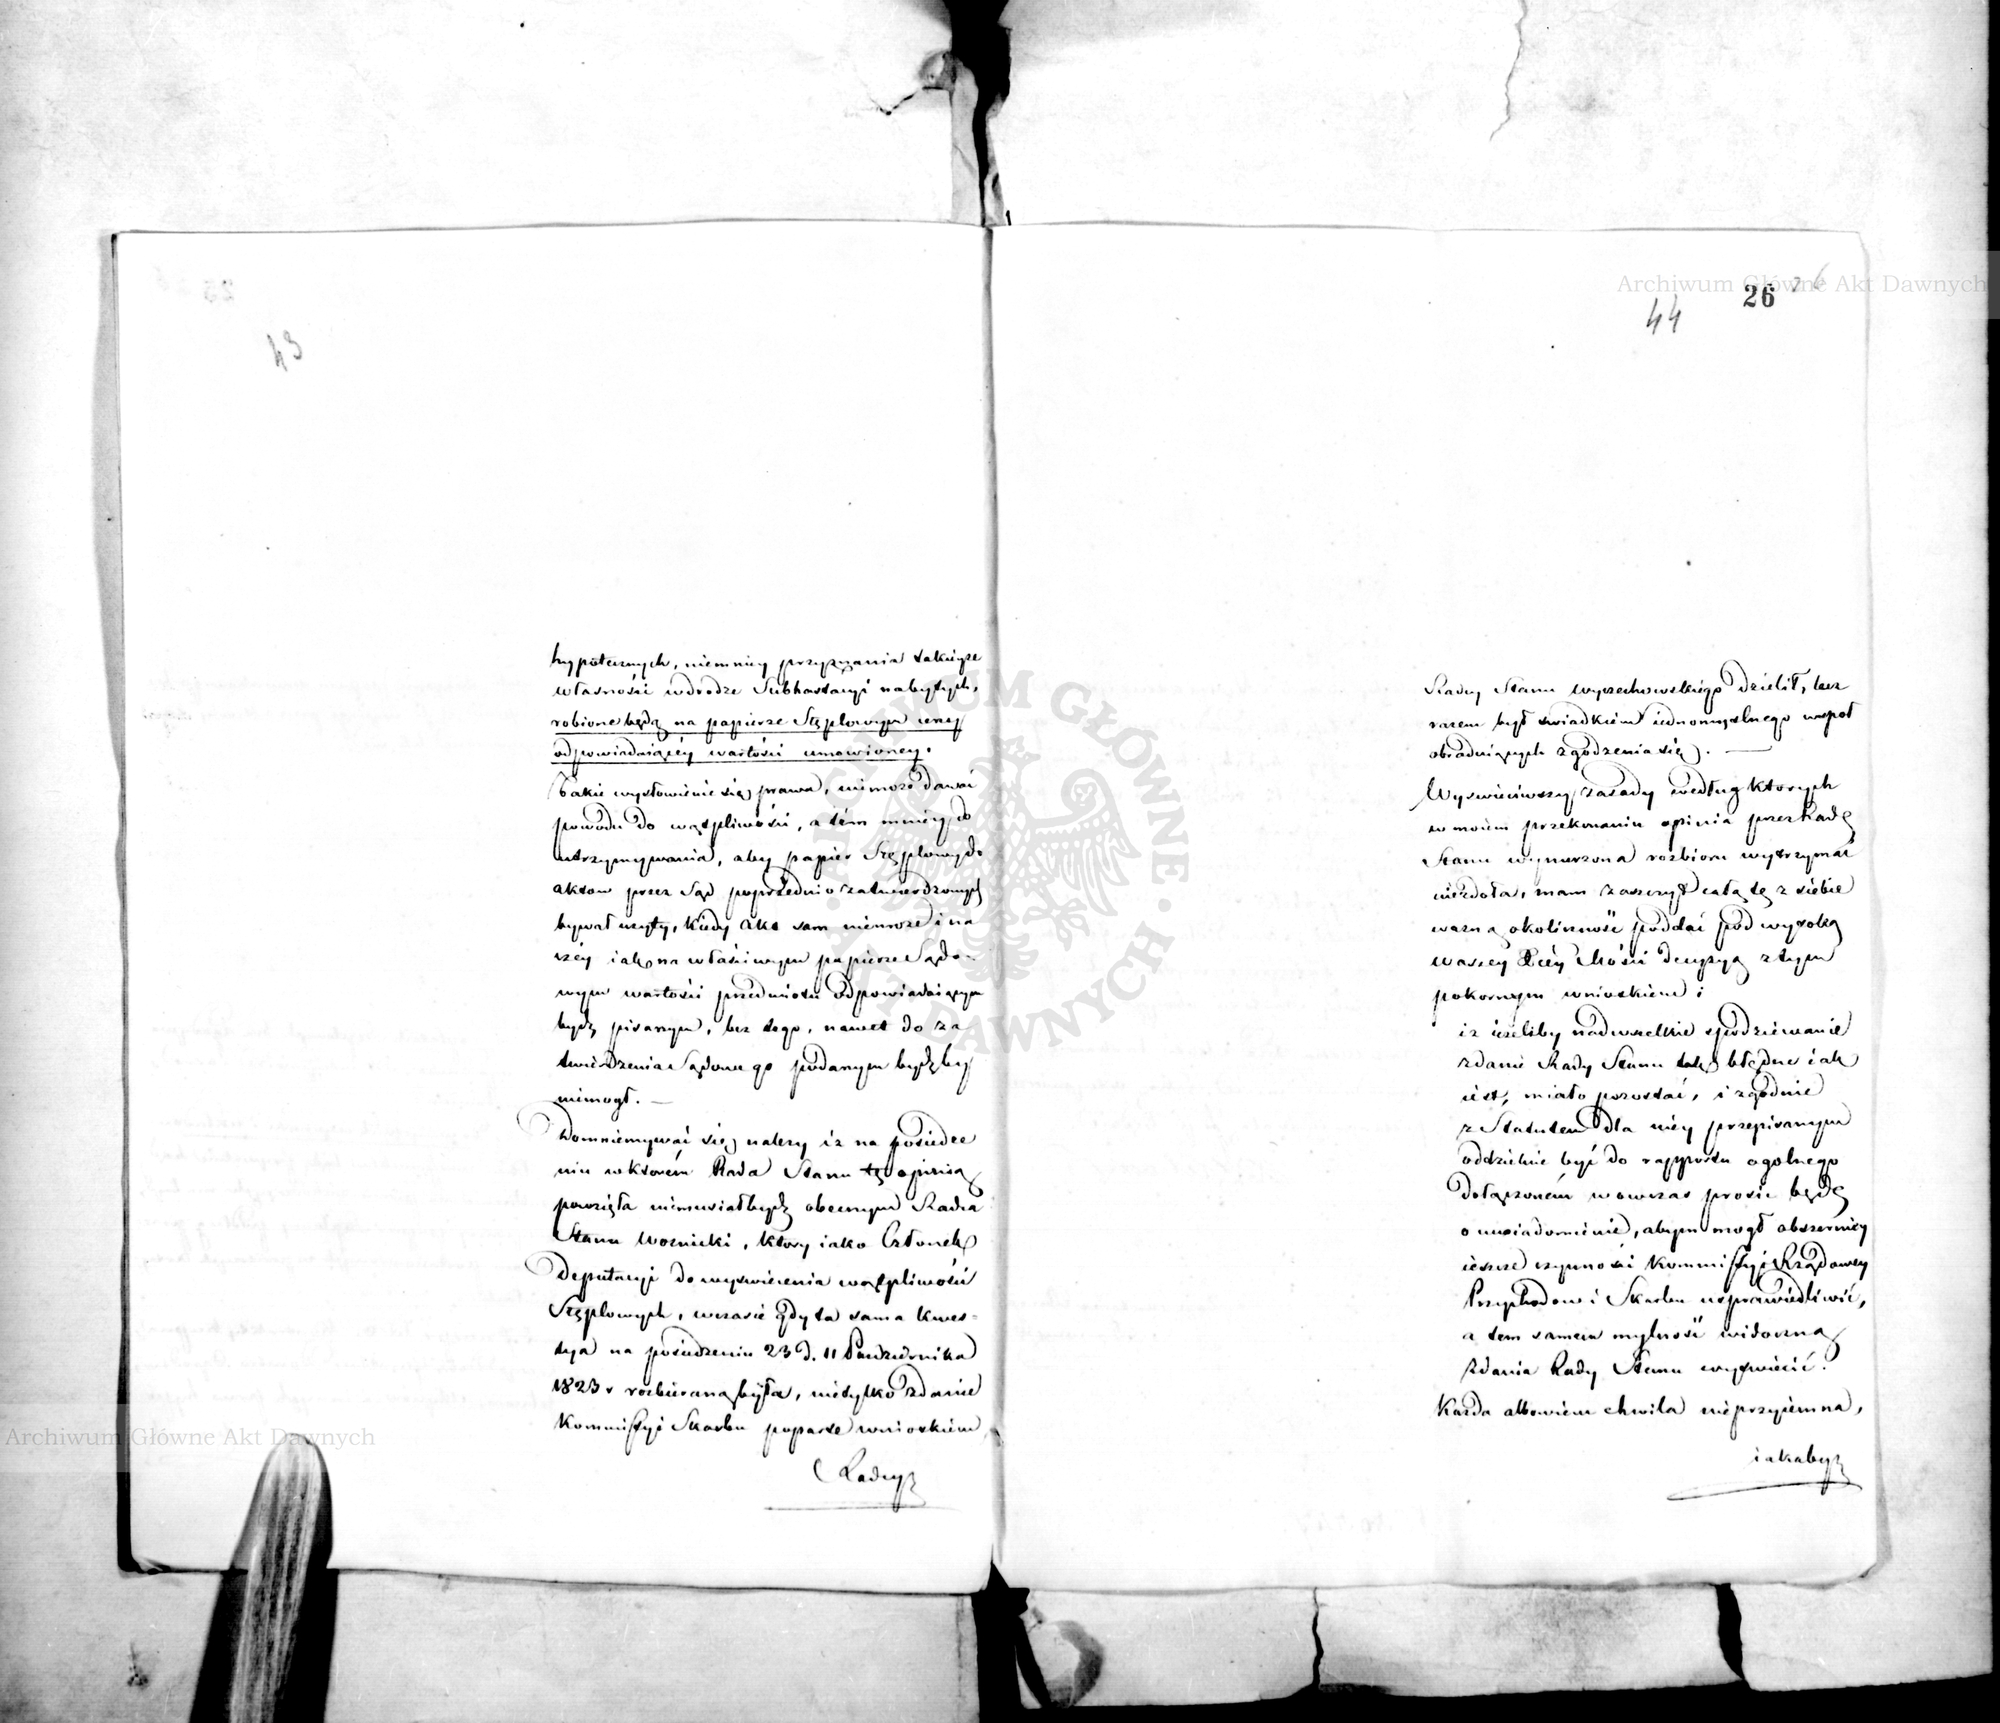 43
hypotecznych, niemniéy przyznania takieyże
własności wdrodze Subhastacyi nabytych,
robione będą na papierze Stęplowym ceny
odpowiadaiącéy wartości umowionéy.
Takie wysłowienie się prawa, niemoże dawać
powodu do wątpliwości, a tém mniéy do
utrzymywania, aby papier Stęplowy do
aktow przez Sąd poprzednio zatwierdzonych
bywał użyty, kiedy akt sam niemoże i na
czéy iak na właściwym papierze Sądo-
wym wartości przedmiotu odpowiadaiącym
bydź pisanym, bez tego, nawet do za
twierdzenia Sądowego podanym bydź by
niemogł. —
Domniemywać się należy iż na posiedze
niu w ktorém Rada Stanu tę opinią
powzięła niemusiał bydź obecnym Radca
Stanu Woznicki, ktory iako Członek
Deputacyi do wyświecenia wątpliwości
Stęplowych, wczasie gdy ta sama kwes-
tya na posiedzeniu 23 d. 11 Pazdziernika
1823 r rozbieraną była, nietylko zdanie
Kommissyi Skarbu poparte wnioskiem
Radcy
26
26
44
Radcy Stanu Wyczechowskiego dzielił, lecz
razem był świadkiem iednomyślnego wspoł
obraduiących zgodzenia się. —
Wyświeciwszy zasady według ktorych
w moiem przekonaniu opinia przez Radę
Stanu wynurzona rozbioru wytrzymać
niezdoła, mam zaszczyt całą tę z siebie
ważną okoliczność poddać pod wysoką
Waszéy Xcéy Mości decyzyą z tym
pokornym wnioskiem:
iż ieżeliby nadwszelkie spodziewanie
zdanie Rady Stanu tak błędne iak
iest, miało pozostać, i zgodnie
z Statutem dla niéy przepisanym
oddzielnie być do rapportu ogolnego
dołączoném wowczas prosić będę
o uwiadomienie, abym mogł obszerniéy
ieszcze czynności Kommissyi Rządowéy
Przychodow i Skarbu usprawiedliwić,
a tem samem mylność widoczną
zdania Rady Stanu wyświecić.
Każda albowiem chwila nieprzyiemna,
iakabyż
Archiwum Główne Akt Dawnych
Archiwum Główne Akt Dawnych
ARCHIWUM GŁÓWNE · AKT DAWNYCH ·